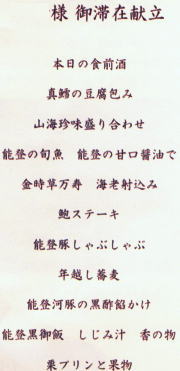 様 御滞在献立
本日の食前酒
真鱈の豆腐包み
山海珍味盛り合わせ
能登の旬魚 能登の甘口醤油で
金時草万寿 海老射込み
鮑ステーキ
能登豚しゃぶしゃぶ
年越し蕎麦
能登河豚の黒酢餡かけ
能登黒御飯 しじみ汁 香の物
栗プリンと果物